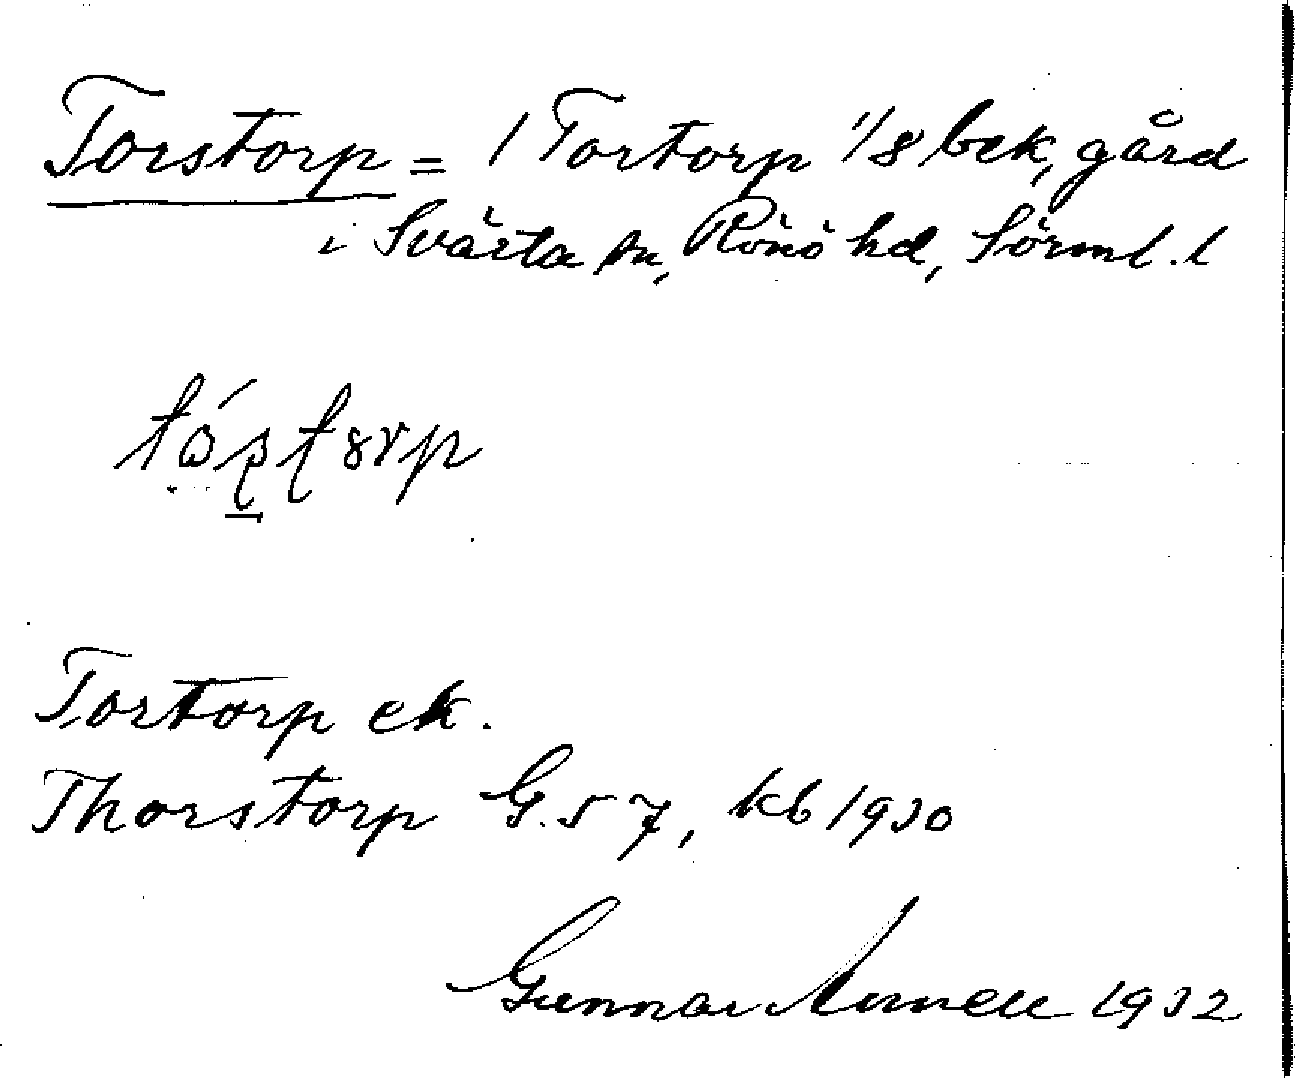 Torstorp = 1 Tortorp 1/8 bek, gård
i Svärta sn, Rönö hd, Sörml. l
Tortorp ek.
Thorstorp G.57, kb 1930
Gunnar 1932